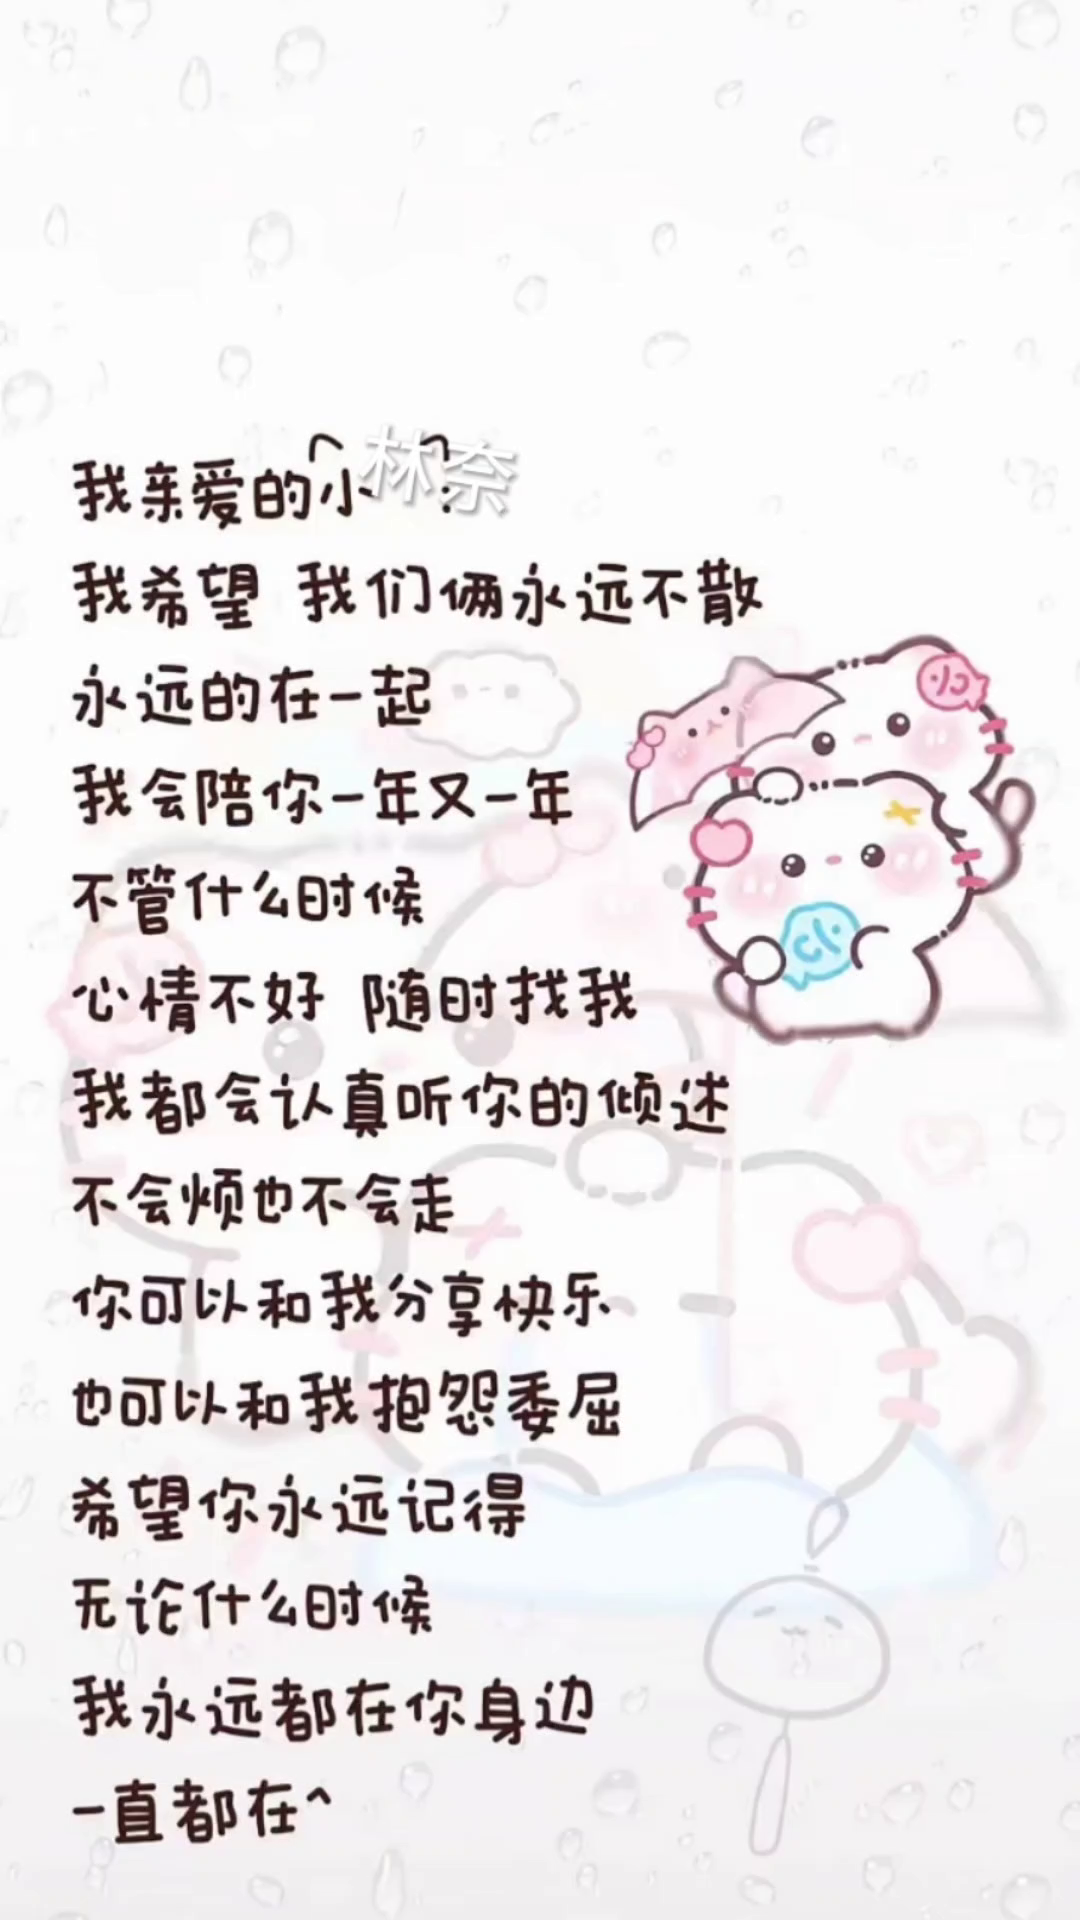 我亲爱的小林奈:
我希望 我们俩永远不散
永远的在一起
我会陪你一年又一年
不管什么时候
心情不好 随时找我
我都会认真听你的倾述
不会烦也不会走
你可以和我分享快乐
也可以和我抱怨委屈
希望你永远记得
无论什么时候
我永远都在你身边
一直都在^